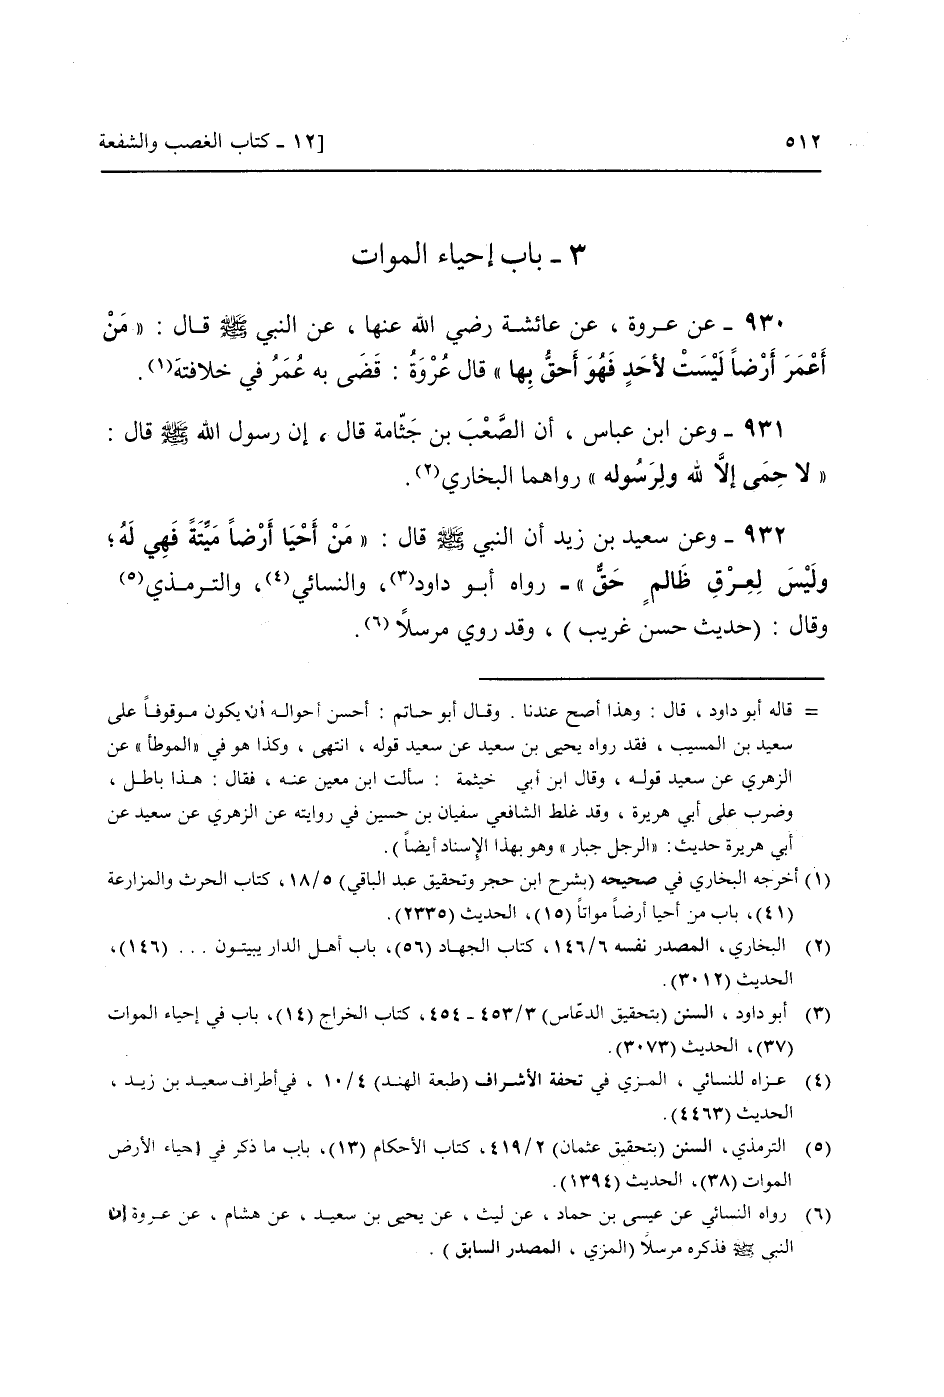 ٥١٢
[١٢ ـ كتاب الغصب والشفعة
٣ ـ باب إحياء الموات
٩٣٠ ـ عن عروة ، عن عائشة رضي الله عنها ، عن النبي ﷺ قال : « مَنْ
أَعْمَرَ أَرْضاً لَيْسَتْ لأحَدٍ فَهُوَ أَحقُّ بِها » قال عُرْوَةُ : قَضَى به عُمَرُ في خلافتهَ(١).
٩٣١ ـ وعن ابن عباس ، أن الصَّعْبَ بن جَثّامة قال ، إن رسول الله ﷺ قال :
« لا حِمَى إلاَّ لله ولِرَسُوله » رواهما البخاري(٢).
٩٣٢ ـ وعن سعيد بن زيد أن النبي ﷺ قال : « مَنْ أَحْيَا أَرْضاً مَيِّتَةً فَهِي لَهُ؛
ولَيْسَ لِعِرْقِ ظَالمٍ حَقٌّ »ـ رواه أبو داود(٣)، والنسائي(٤)، والترمذي(٥)
وقال : (حديث حسن غريب ) ، وقد روي مرسلاً (٦).
= قاله أبو داود ، قال : وهذا أصح عندنا . وقال أبو حاتم : أحسن أحواله أن يكون موقوفاً على
سعيد بن المسيب ، فقد رواه يحيى بن سعيد عن سعيد قوله ، انتهى ، وكذا هو في «الموطأ» عن
الزهري عن سعيد قوله ، وقال ابن أبي خيثمة : سألت ابن معين عنه ، فقال : هذا باطل ،
وضرب على أبي هريرة ، وقد غلط الشافعي سفيان بن حسين في روايته عن الزهري عن سعيد عن
أبي هريرة حديث: «الرجل جبار» وهو بهذا الإسناد أيضاً ).
(١) أخرجه البخاري في صحيحه (بشرح ابن حجر وتحقيق عبد الباقي) ١٨/٥، كتاب الحرث والمزارعة
(٤١)، باب من أحيا أرضاً مواتاً (١٥)، الحديث (٢٣٣٥).
(٢) البخاري، المصدر نفسه ١٤٦/٦، كتاب الجهاد (٥٦)، باب أهل الدار يبيتون ... (١٤٦)،
الحديث (٣٠١٢).
(٣) أبو داود ، السنن (بتحقيق الدعّاس) ٤٥٣/٣ ـ ٤٥٤، كتاب الخراج (١٤)، باب في إحياء الموات
(٣٧)، الحديث (٣٠٧٣).
(٤) عزاه للنسائي ، المزي في تحفة الأشراف (طبعة الهند) ١٠/٤ ، في أطراف سعيد بن زيد ،
الحديث (٤٤٦٣).
(٥) الترمذي، السنن (بتحقيق عثمان) ٤١٩/٢، كتاب الأحكام (١٣)، باب ما ذكر في إحياء الأرض
الموات (٣٨)، الحديث (١٣٩٤).
(٦) رواه النسائي عن عيسى بن حماد ، عن ليث ، عن يحيى بن سعيد ، عن هشام ، عن عروة إن
النبي ﷺ فذكره مرسلاً (المزي ، المصدر السابق ) .